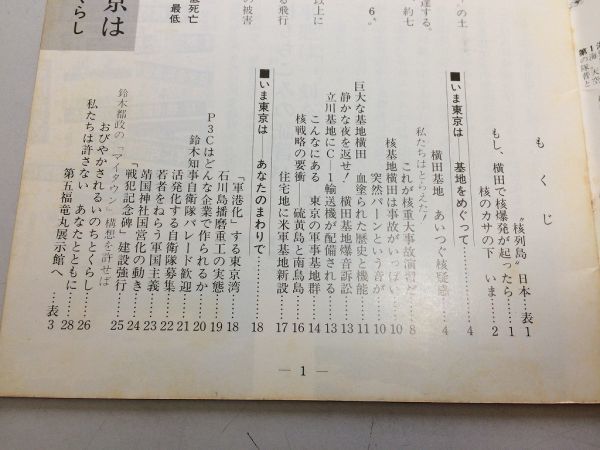 もくじ
“核列島”日本……表1
もし、横田で核爆発が起ったら……1
核のカサの下 いま……2
■いま東京は――基地をめぐって……4
私たちはとらえた！
横田基地 あいつぐ核疑惑……4
これが核重大事故演習だ……8
核基地横田は事故がいっぱい……10
突然バーンという音が……10
巨大な基地横田 血塗られた歴史と機能……11
静かな夜を返せ！ 横田基地爆音訴訟……13
立川基地にC-1輸送機が配備される……13
こんなにある 東京の軍事基地群……14
核戦略の要衝 硫黄島と南鳥島……16
住宅地に米軍基地新設……17
■いま東京は――あなたのまわりで……18
「軍港化」する東京湾……18
石川島播磨重工の実態……19
P3Cはどんな企業で作られるか……20
鈴木知事自衛隊パレード歓迎……21
活発化する自衛隊募集……22
若者をねらう軍国主義……23
靖国神社国営化の動き……24
「戦犯記念碑」建設強行……25
鈴木都政の「マイタウン」構想を許せば
おびやかされるいのちとくらし……26
私たちは許さない あなたとともに……28
第五福竜丸展示館へ……表3
— 1 —
の土
達する。
約七
6。
以上に
る飛行
の被害
死亡
最低
京は
くらし
第1